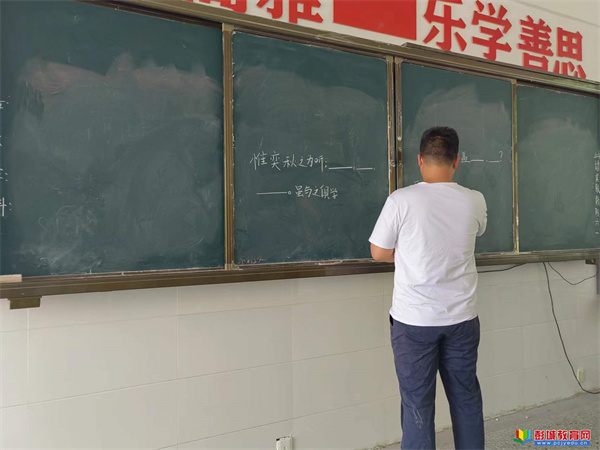 雅
乐学善思
惟奕秋之为听，____
____。虽与之俱学
____？
彭城教育网
www.pcjyedu.cn